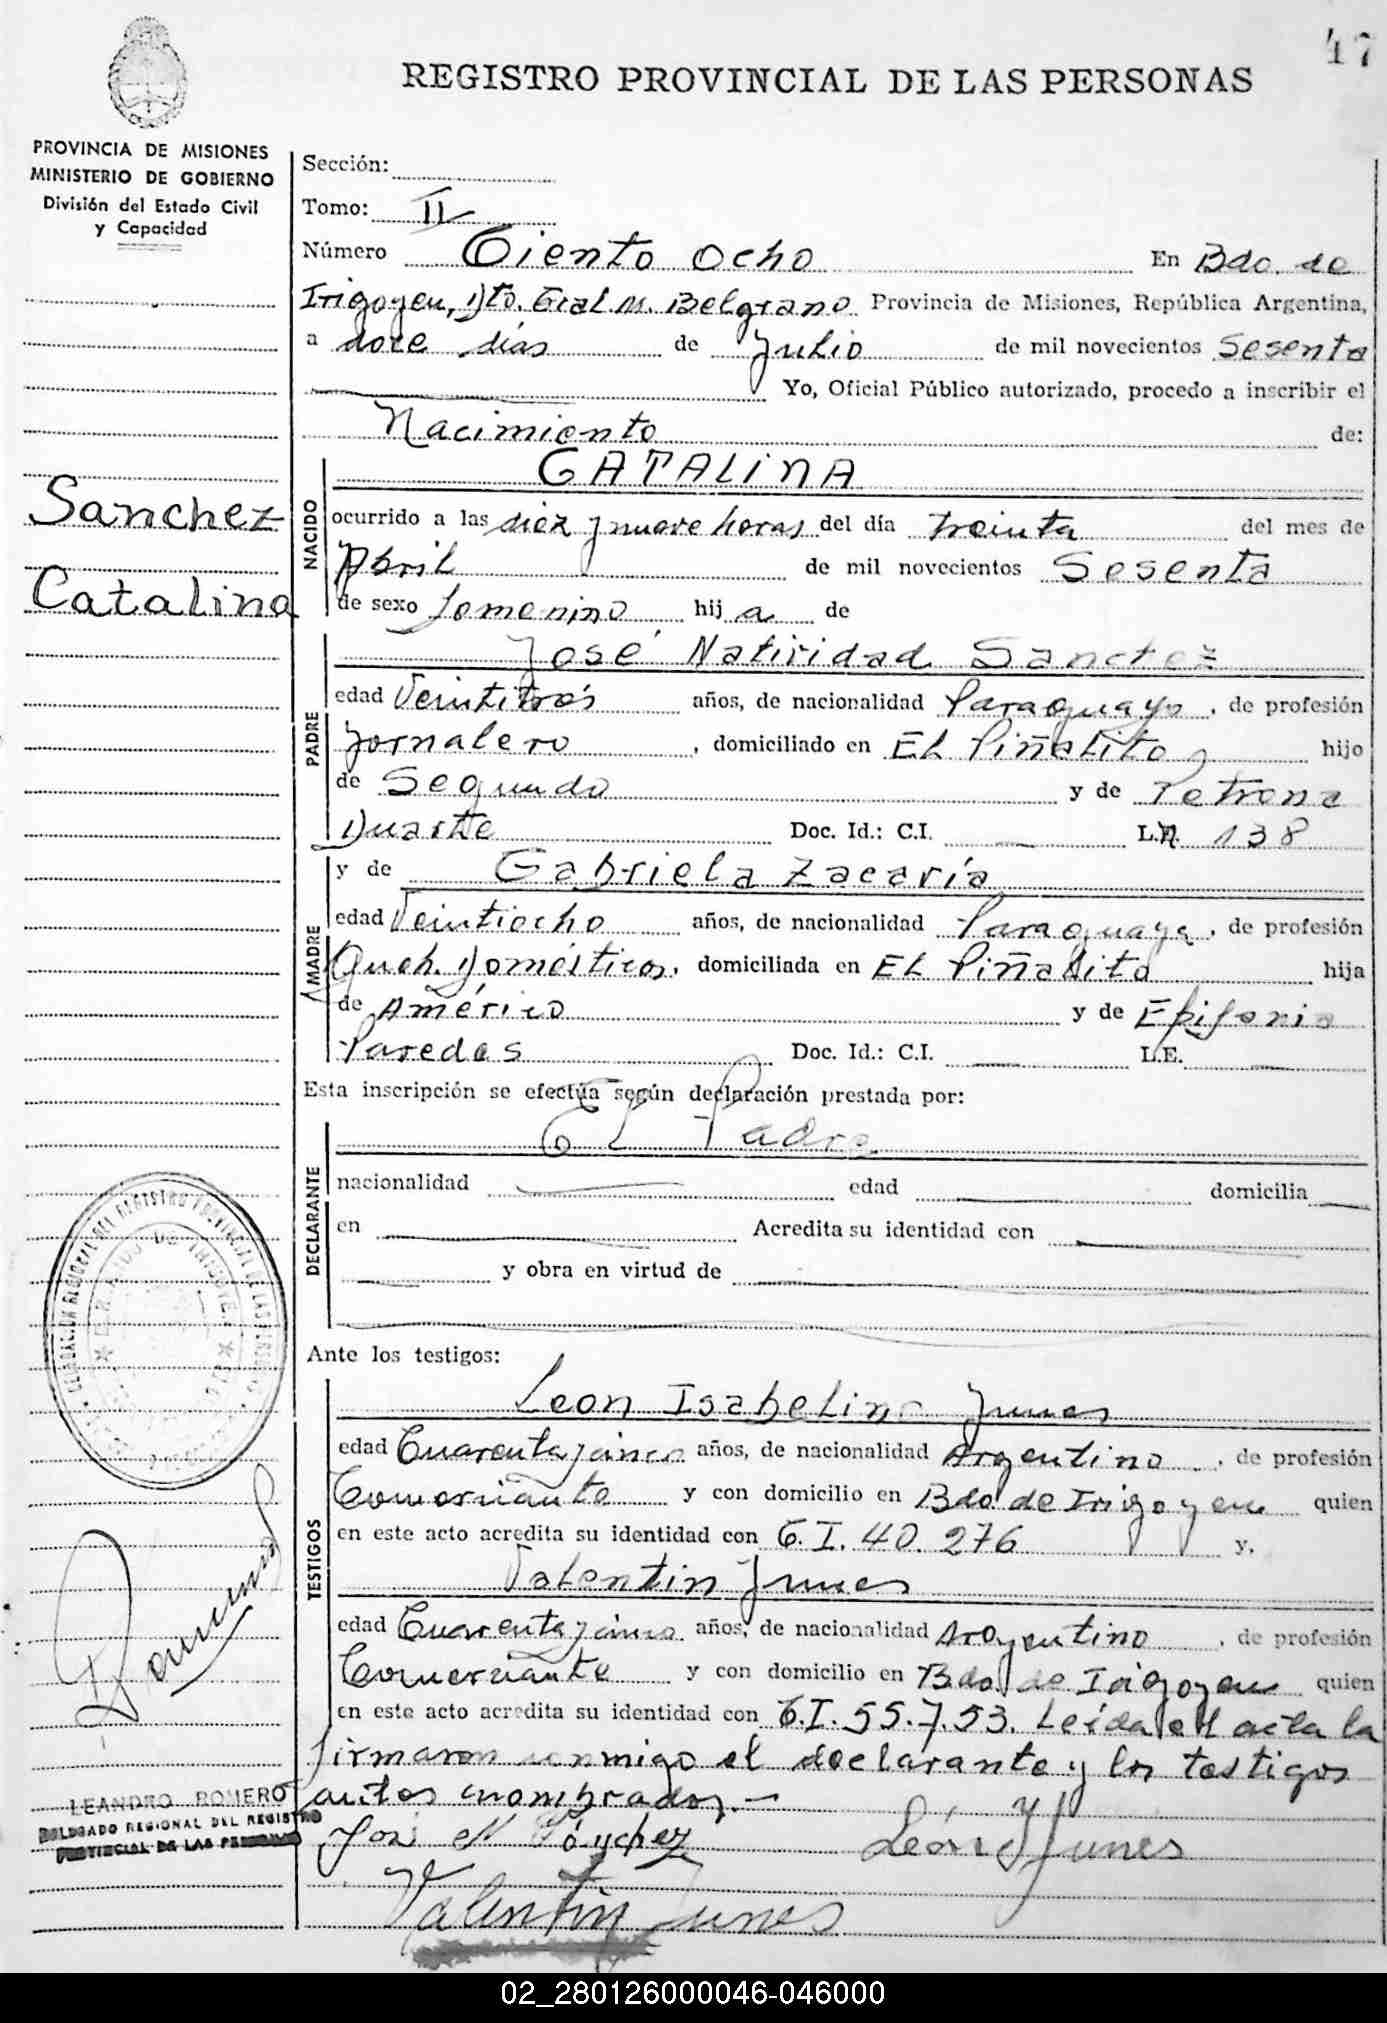 47
REGISTRO PROVINCIAL DE LAS PERSONAS
PROVINCIA DE MISIONES
MINISTERIO DE GOBIERNO
División del Estado Civil
y Capacidad
Sanchez
Catalina
Sección:
Tomo: II
Número Ciento ocho En Bdo. de
Irigoyen, Dto. Gral M. Belgrano Provincia de Misiones, República Argentina,
a doce días de Julio de mil novecientos Sesenta
Yo, Oficial Público autorizado, procedo a inscribir el
Nacimiento de:
NACIDO
CATALINA
ocurrido a las diez y nueve horas del día treinta del mes de
Abril de mil novecientos Sesenta
de sexo femenino hij a de
PADRE
José Natividad Sanchez
edad Veintitrés años, de nacionalidad Paraguayo, de profesión
Jornalero, domiciliado en El Piñalito hijo
de Segundo y de Petrona
Duarte Doc. Id.: C.I. L.M. 138
MADRE
y de Gabriela Zacaría
edad Veintiocho años, de nacionalidad Paraguaya, de profesión
Queh. Domésticos, domiciliada en El Piñalito hija
de Américo y de Epifania
Paredes Doc. Id.: C.I. L.E.
Esta inscripción se efectúa según declaración prestada por:
DECLARANTE
El Padre
nacionalidad edad domicilia
en Acredita su identidad con
y obra en virtud de
Ante los testigos:
TESTIGOS
Leon Isabelino Junes
edad Cuarenta y cinco años, de nacionalidad Argentino, de profesión
Comerciante y con domicilio en Bdo de Irigoyen quien
en este acto acredita su identidad con C.I. 40.276 y,
Valentin Junes
edad Cuarenta y cinco años, de nacionalidad Argentino, de profesión
Comerciante y con domicilio en Bdo de Irigoyen quien
en este acto acredita su identidad con C.I. 55.7.53. Leída el acta la
firmaron conmigo el declarante y los testigos
antes nombrados.-
José N Sánchez León Y Junes
Valentin Junes
LEANDRO ROMERO
DELEGADO REGIONAL DEL REGISTRO
PROVINCIAL DE LAS PERSONAS
02_280126000046-046000